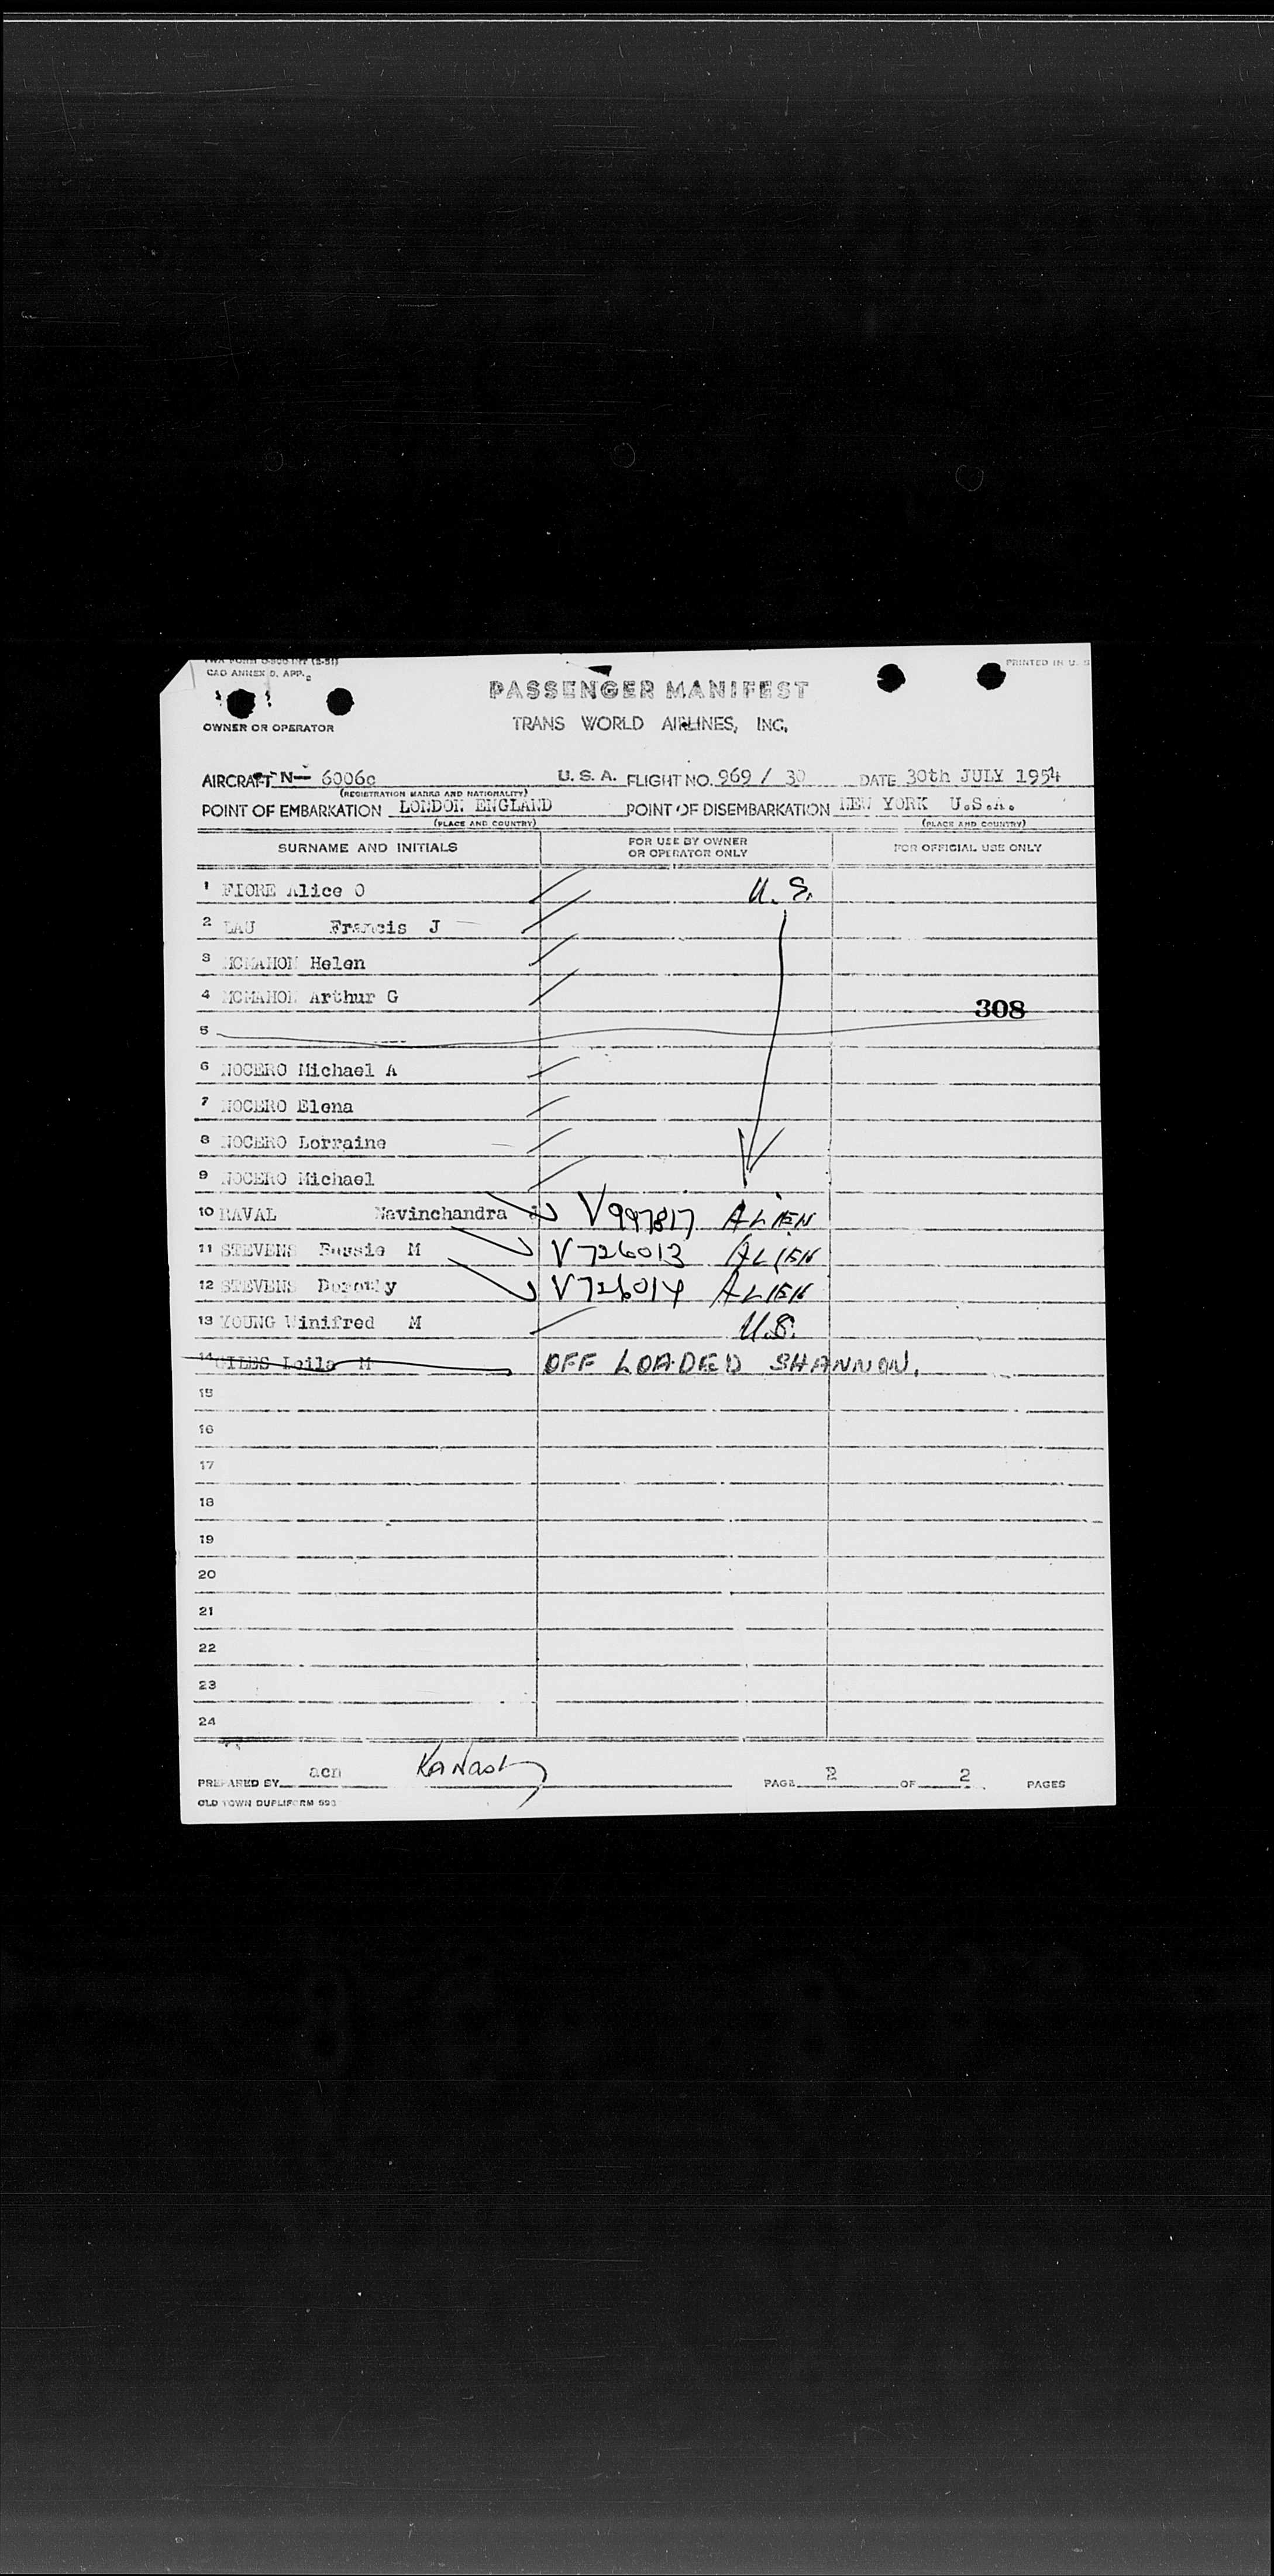 TWA FORM O-800-INT (5-51)
CAO ANNEX 9, APP.
PRINTED IN U. S
PASSENGER MANIFEST
OWNER OR OPERATOR
TRANS WORLD AIRLINES, INC.
AIRCRAFT N— 6006c U. S. A. FLIGHT NO. 969 / 30 DATE 30th JULY 1954
(REGISTRATION MARKS AND NATIONALITY)
POINT OF EMBARKATION LONDON ENGLAND POINT OF DISEMBARKATION NEW YORK U.S.A.
(PLACE AND COUNTRY) (PLACE AND COUNTRY)
SURNAME AND INITIALS FOR USE BY OWNER OR OPERATOR ONLY FOR OFFICIAL USE ONLY
1 FIORE Alice O U. S.
2 LAU Francis J
3 MCMAHON Helen
4 MCMAHON Arthur G
308
5
6 NOCERO Michael A
7 NOCERO Elena
8 NOCERO Lorraine
9 NOCERO Michael
10 RAVAL Navinchandra V997817 ALIEN
11 STEVENS Bessie M V726013 ALIEN
12 STEVENS Dorothy V726014 ALIEN
13 YOUNG Winifred M U.S.
14 GILES Leila M OFF LOADED SHANNON.
15
16
17
18
19
20
21
22
23
24
PREPARED BY acn PAGE 2 OF 2 PAGES
OLD TOWN DUPLIFORM